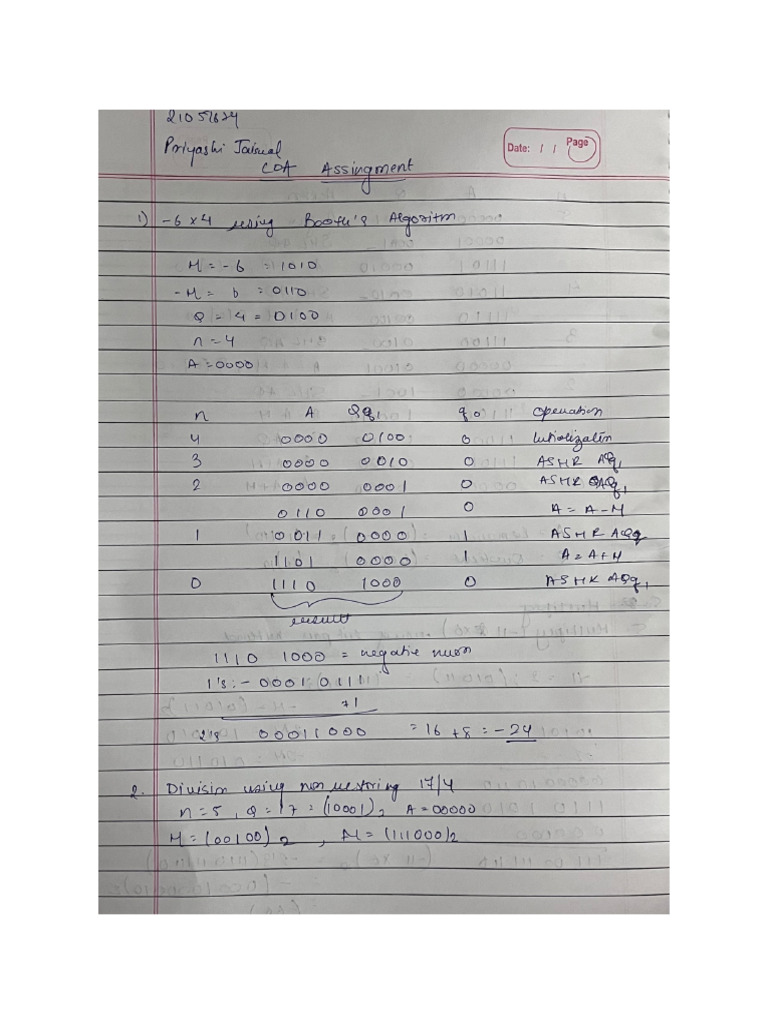 21051624
Priyashi Jaiswal
Date: / / Page
COA Assingment
1) -6 x 4 using Booth's Algoritm
M = -6 = 1010
-M = 6 = 0110
Q = 4 = 0100
n = 4
A = 0000
n A Qq1 q0 Operation
4 0000 0100 0 Initialization
3 0000 0010 0 ASHR AQq1
2 0000 0001 0 ASHR AQq1
0110 0001 0 A = A-M
1 0011 0000 1 ASHR AQq
1101 0000 1 A = A+M
0 1110 1000 0 ASHR AQq1
result
1110 1000 = negative num
1's :- 0001 0111
+1
2's 00011000 = 16 + 8 = -24
2. Division using non restoring 17/4
n = 5, Q = 17 = (10001)2 A = 00000
M = (00100)2, = (111000)2